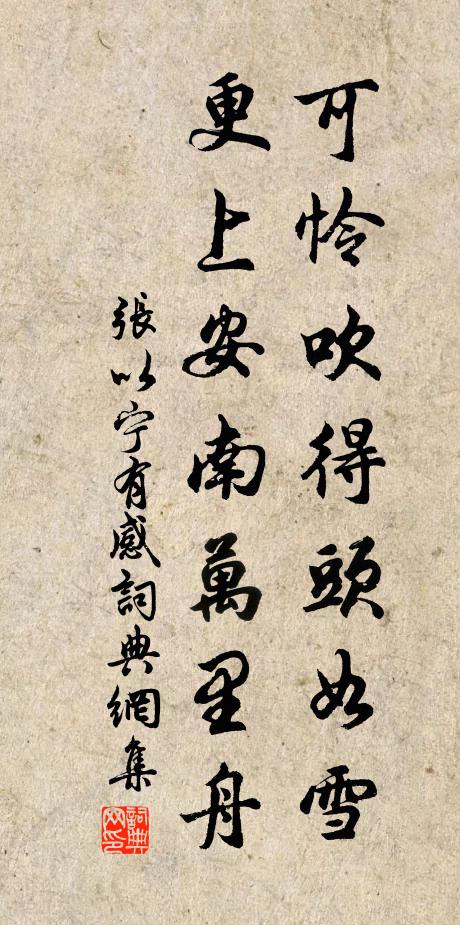 可憐吹得頭如雪
更上安南萬里舟
張以宁有感詞典網集
詞典网印